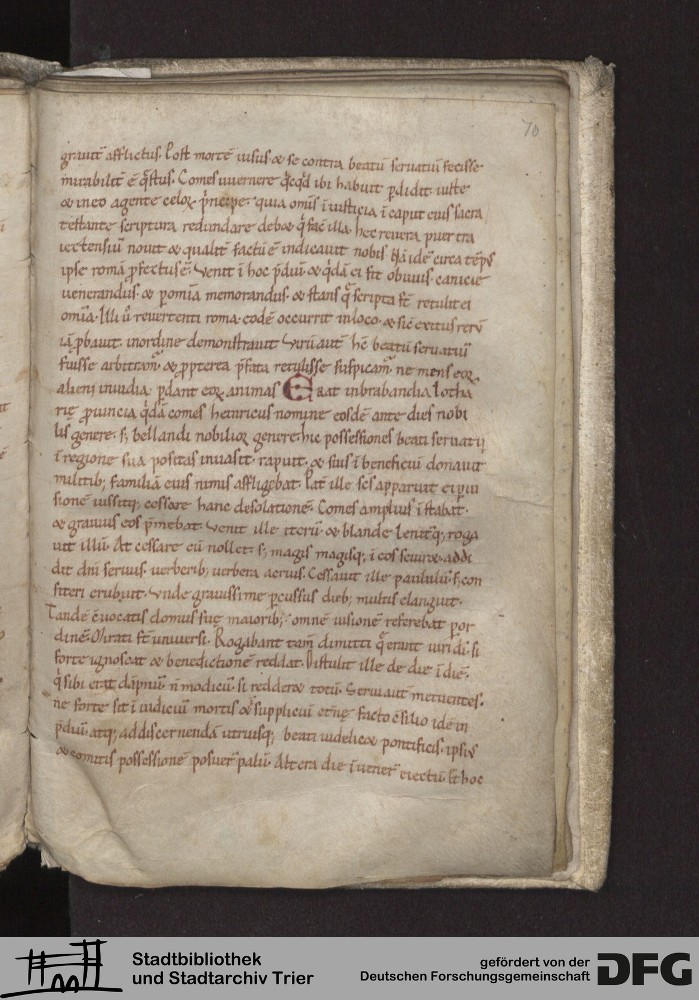 70
grauit̄ afflictus. Post mortē uisus & se contra beatū seruatiū fecisse
mirabilit̄ ē q̄stus. Comes uuernere q̄cq̄d ibi habuit p̄didit. iuste
& in eo agente celoꝝ p̄ncipe. quia om̄is ī iusticia ī caput eius sacra
testante scriptura redundare deb& q̄ fac̄ illa. hec reuera puer tra
iectensiū nouit & qualit̄ factū ē indicauit nobis. Nā idē circa tēp̄s
ipse romā p̄fectus ē. Venit ī hoc p̄diū. & q̄dā ei fit obuius. canicie
uenerandus. & p om̄ia memorandus. & stans q̄ scripta s̄t retulit ei
om̄ia. Illi ū reuertenti roma. eodē occurrit in loco. & sic̄ exitus rerū
iā p̄bauit. inordine demonstrauit. Virū aut̄ hc̄ beatū seruatiū
fuisse arbitram̄. & p̄pterea p̄fata retulisse suspicam̄. ne mens eoꝝ
alieni inuidia. p̄dant eoꝝ animas Erat in brabandia lotha
rię p̄uincia q̄dā comes heinricus nomine eosdē ante dies nobi
lis genere. s; bellandi nobilioꝝ genere. hic possessiones beati seruatii
ī regione sua positas inuasit. rapuit. & suis ī beneficiū donauit
militib; familiā eius nimis affligebat. Pat̄ ille sc̄s apparuit ei p ui
sionē iussitq; cessare hanc desolationē. Comes amplius ī stabat.
& grauius eos p̄mebat. Venit ille iterū. & blande lenit̄q; roga
uit illū. At cessare cū nollet. s; magis magisq; ī eos seuir&. addi
dit dn̄i seruus. uerberib; uerbera acrius. Cessauit ille paululū. s; con
fiteri erubuit. Vnde grauissime p̄cussus dieb; multis elanguit.
Tandē c̄uocatis domus suę maiorib; omnē uisionē referebat p or
dinē. Mirati s̄t uniuersi. Rogabant tam̄ dimitti q̄ erant uiri dī. si
forte ignoscat & benedictionē reddat. Distulit ille de die ī diē.
q̄ sibi erat dāpnū n̄ modicū. si redder& totū. Serui aut̄ metuentes.
ne forte sit ī iudiciū mortis & suppliciū et̄nę. facto c̄silio idē in
p̄diū. atq; addiscernendā utriusq; beati uidelic& pontificis. ipsiꝰ
& comitis possessionē posuer̄ paliū. Altera die ī uener̄ eiectū. Et hoc
Stadtbibliothek
und Stadtarchiv Trier
gefördert von der
Deutschen Forschungsgemeinschaft
DFG